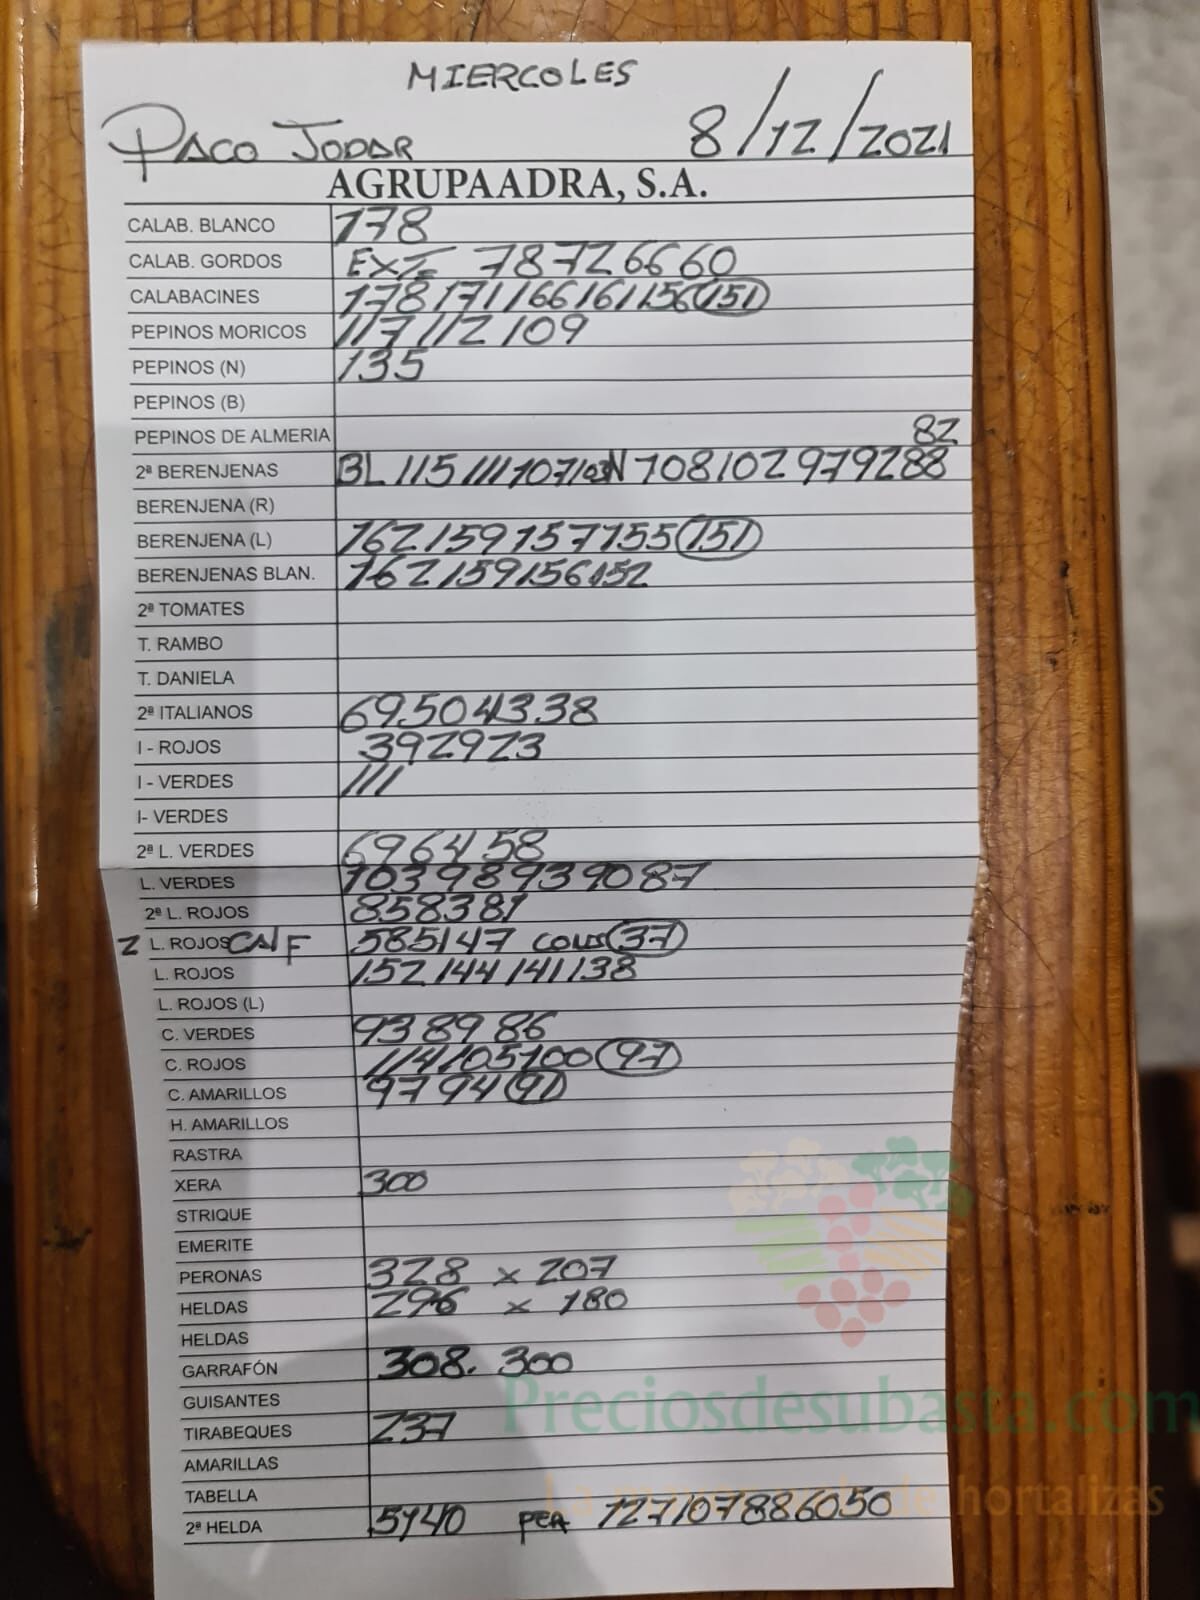 MIERCOLES
PACO JODAR 8/12/2021
AGRUPAADRA, S.A.
CALAB. BLANCO 178
CALAB. GORDOS EXT 78 72 66 60
CALABACINES 178 171 166 161 156 (151)
PEPINOS MORICOS 117 112 109
PEPINOS (N) 135
PEPINOS (B)
PEPINOS DE ALMERIA 82
2ª BERENJENAS BL 115 111 107 103 N 108 102 97 92 88
BERENJENA (R)
BERENJENA (L) 162 159 157 155 (151)
BERENJENAS BLAN. 162 159 156 152
2ª TOMATES
T. RAMBO
T. DANIELA
2ª ITALIANOS 69 50 43 38
I - ROJOS 39 29 23
I - VERDES 111
I- VERDES
2ª L. VERDES 69 64 58
L. VERDES 103 98 93 90 87
2ª L. ROJOS 85 83 81
2 L. ROJOS CALF 58 51 47 COLIS (37)
L. ROJOS 152 144 141 138
L. ROJOS (L)
C. VERDES 93 89 86
C. ROJOS 114 105 100 (97)
C. AMARILLOS 97 94 (91)
H. AMARILLOS
RASTRA
XERA 300
STRIQUE
EMERITE
PERONAS 328 x 207
HELDAS 296 x 180
HELDAS
GARRAFÓN 308. 300
GUISANTES
TIRABEQUES 237
AMARILLAS
TABELLA
2ª HELDA 51 40 PER 127 107 88 60 50
Preciosdesubasta.com
La de hortalizas